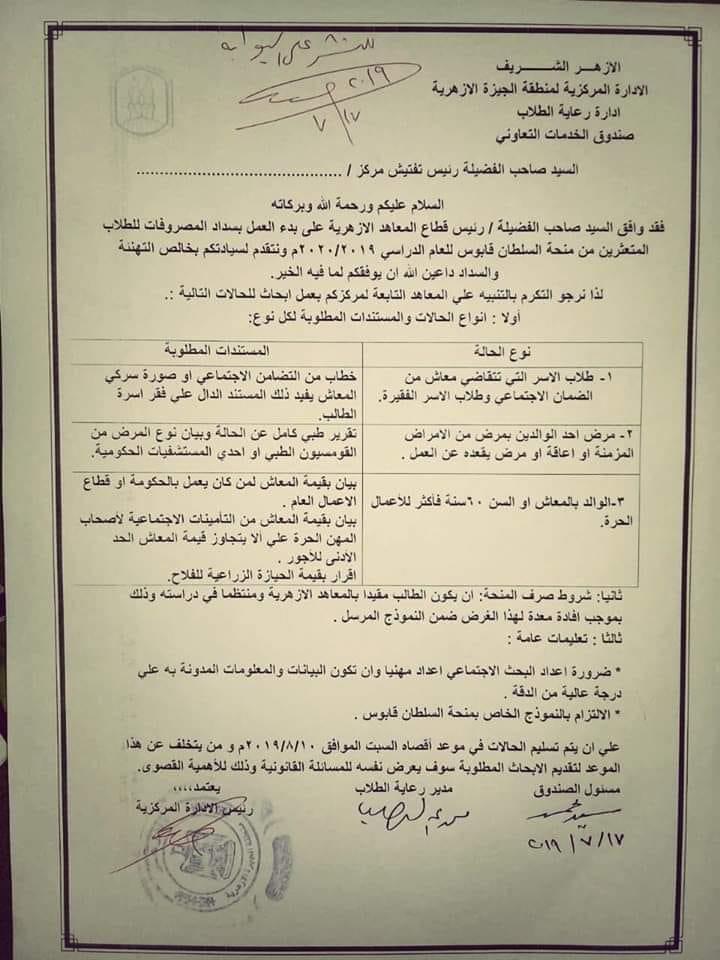 للنشر علي البوابة
٢٠١٩
٧/١٧
الازهر الشـــريف
الادارة المركزية لمنطقة الجيزة الازهرية
ادارة رعاية الطلاب
صندوق الخدمات التعاوني
السيد صاحب الفضيلة رئيس تفتيش مركز / ........................................
السلام عليكم ورحمة الله وبركاته
فقد وافق السيد صاحب الفضيلة / رئيس قطاع المعاهد الازهرية على بدء العمل بسداد المصروفات للطلاب
المتعثرين من منحة السلطان قابوس للعام الدراسي ٢٠٢٠/٢٠١٩م ونتقدم لسيادتكم بخالص التهنئة
والسداد داعين الله ان يوفقكم لما فيه الخير.
لذا نرجو التكرم بالتنبيه علي المعاهد التابعة لمركزكم بعمل ابحاث للحالات التالية :.
أولا : انواع الحالات والمستندات المطلوبة لكل نوع:
نوع الحالة
المستندات المطلوبة
١- طلاب الاسر التي تتقاضي معاش من
الضمان الاجتماعي وطلاب الاسر الفقيرة.
خطاب من التضامن الاجتماعي او صورة سركي
المعاش يفيد ذلك المستند الدال علي فقر اسرة
الطالب.
٢- مرض احد الوالدين بمرض من الامراض
المزمنة او اعاقة او مرض يقعده عن العمل .
تقرير طبي كامل عن الحالة وبيان نوع المرض من
القومسيون الطبي او احدي المستشفيات الحكومية.
٣-الوالد بالمعاش او السن ٦٠سنة فأكثر للأعمال
الحرة.
بيان بقيمة المعاش لمن كان يعمل بالحكومة او قطاع
الاعمال العام .
بيان بقيمة المعاش من التأمينات الاجتماعية لأصحاب
المهن الحرة علي ألا يتجاوز قيمة المعاش الحد
الأدنى للأجور .
اقرار بقيمة الحيازة الزراعية للفلاح.
ثانيا: شروط صرف المنحة: ان يكون الطالب مقيدا بالمعاهد الازهرية ومنتظما في دراسته وذلك
بموجب افادة معدة لهذا الغرض ضمن النموذج المرسل .
ثالثا : تعليمات عامة :
* ضرورة اعداد البحث الاجتماعي اعداد مهنيا وان تكون البيانات والمعلومات المدونة به علي
درجة عالية من الدقة .
* الالتزام بالنموذج الخاص بمنحة السلطان قابوس .
علي ان يتم تسليم الحالات في موعد أقصاه السبت الموافق ٢٠١٩/٨/١٠م و من يتخلف عن هذا
الموعد لتقديم الابحاث المطلوبة سوف يعرض نفسه للمسائلة القانونية وذلك للأهمية القصوى.
مسئول الصندوق
مدير رعاية الطلاب
يعتمد،،،،
رئيس الادارة المركزية
٢٠١٩/٧/١٧